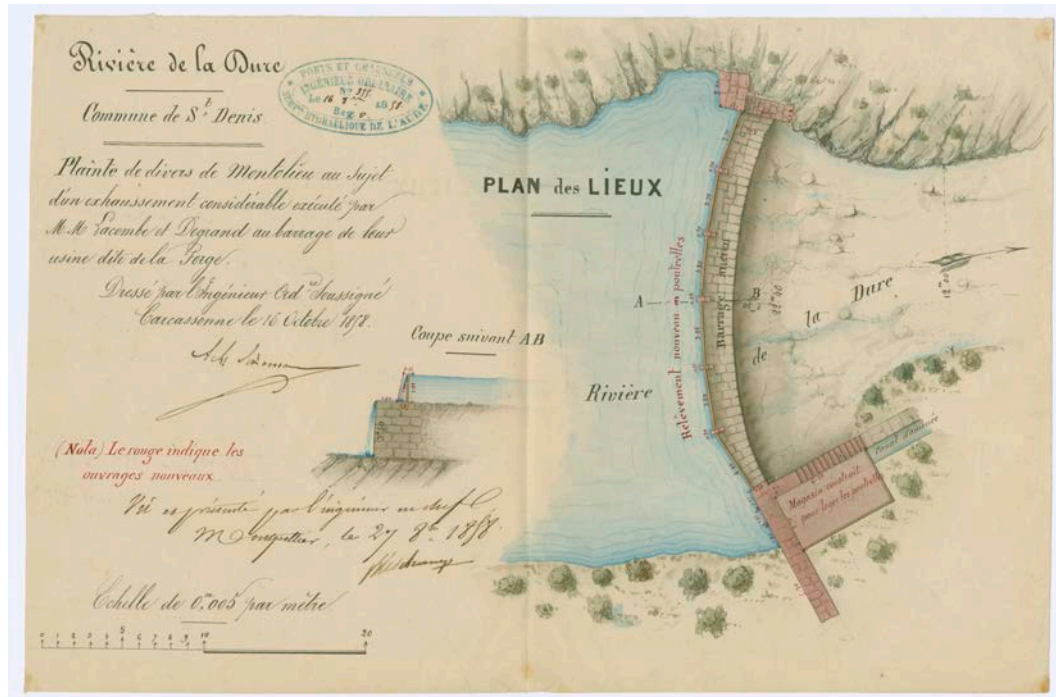 Rivière de la Dure
Commune de St. Denis
PONTS ET CHAUSSÉES
INGÉNIEUR ORDINAIRE
No
Le 16
Reg
HYDRAULIQUE DE L'AUDE
Plainte de divers de Montolieu au Sujet
d'un exhaussement considérable exécuté par
M.M. Lacombe et Degrand au barrage de leur
usine dite de la Forge.
Dressé par l'Ingénieur Ord.re Soussigné
Carcassonne le 16 Octobre 1858.
Coupe suivant AB
(Nota) Le rouge indique les
ouvrages nouveaux
Vu et présenté par l'ingénieur en chef
Montpellier, le 27 8bre 1858.
Echelle de 0m.005 par mètre
0 1 2 3 4 5 6 7 8 9 10 20
PLAN des LIEUX
Relèvement nouveau en poutrelles
Barrage ancien
A
B
Rivière
de
la
Dure
Canal d'amenée
Magasin construit
pour loger les poutrelles